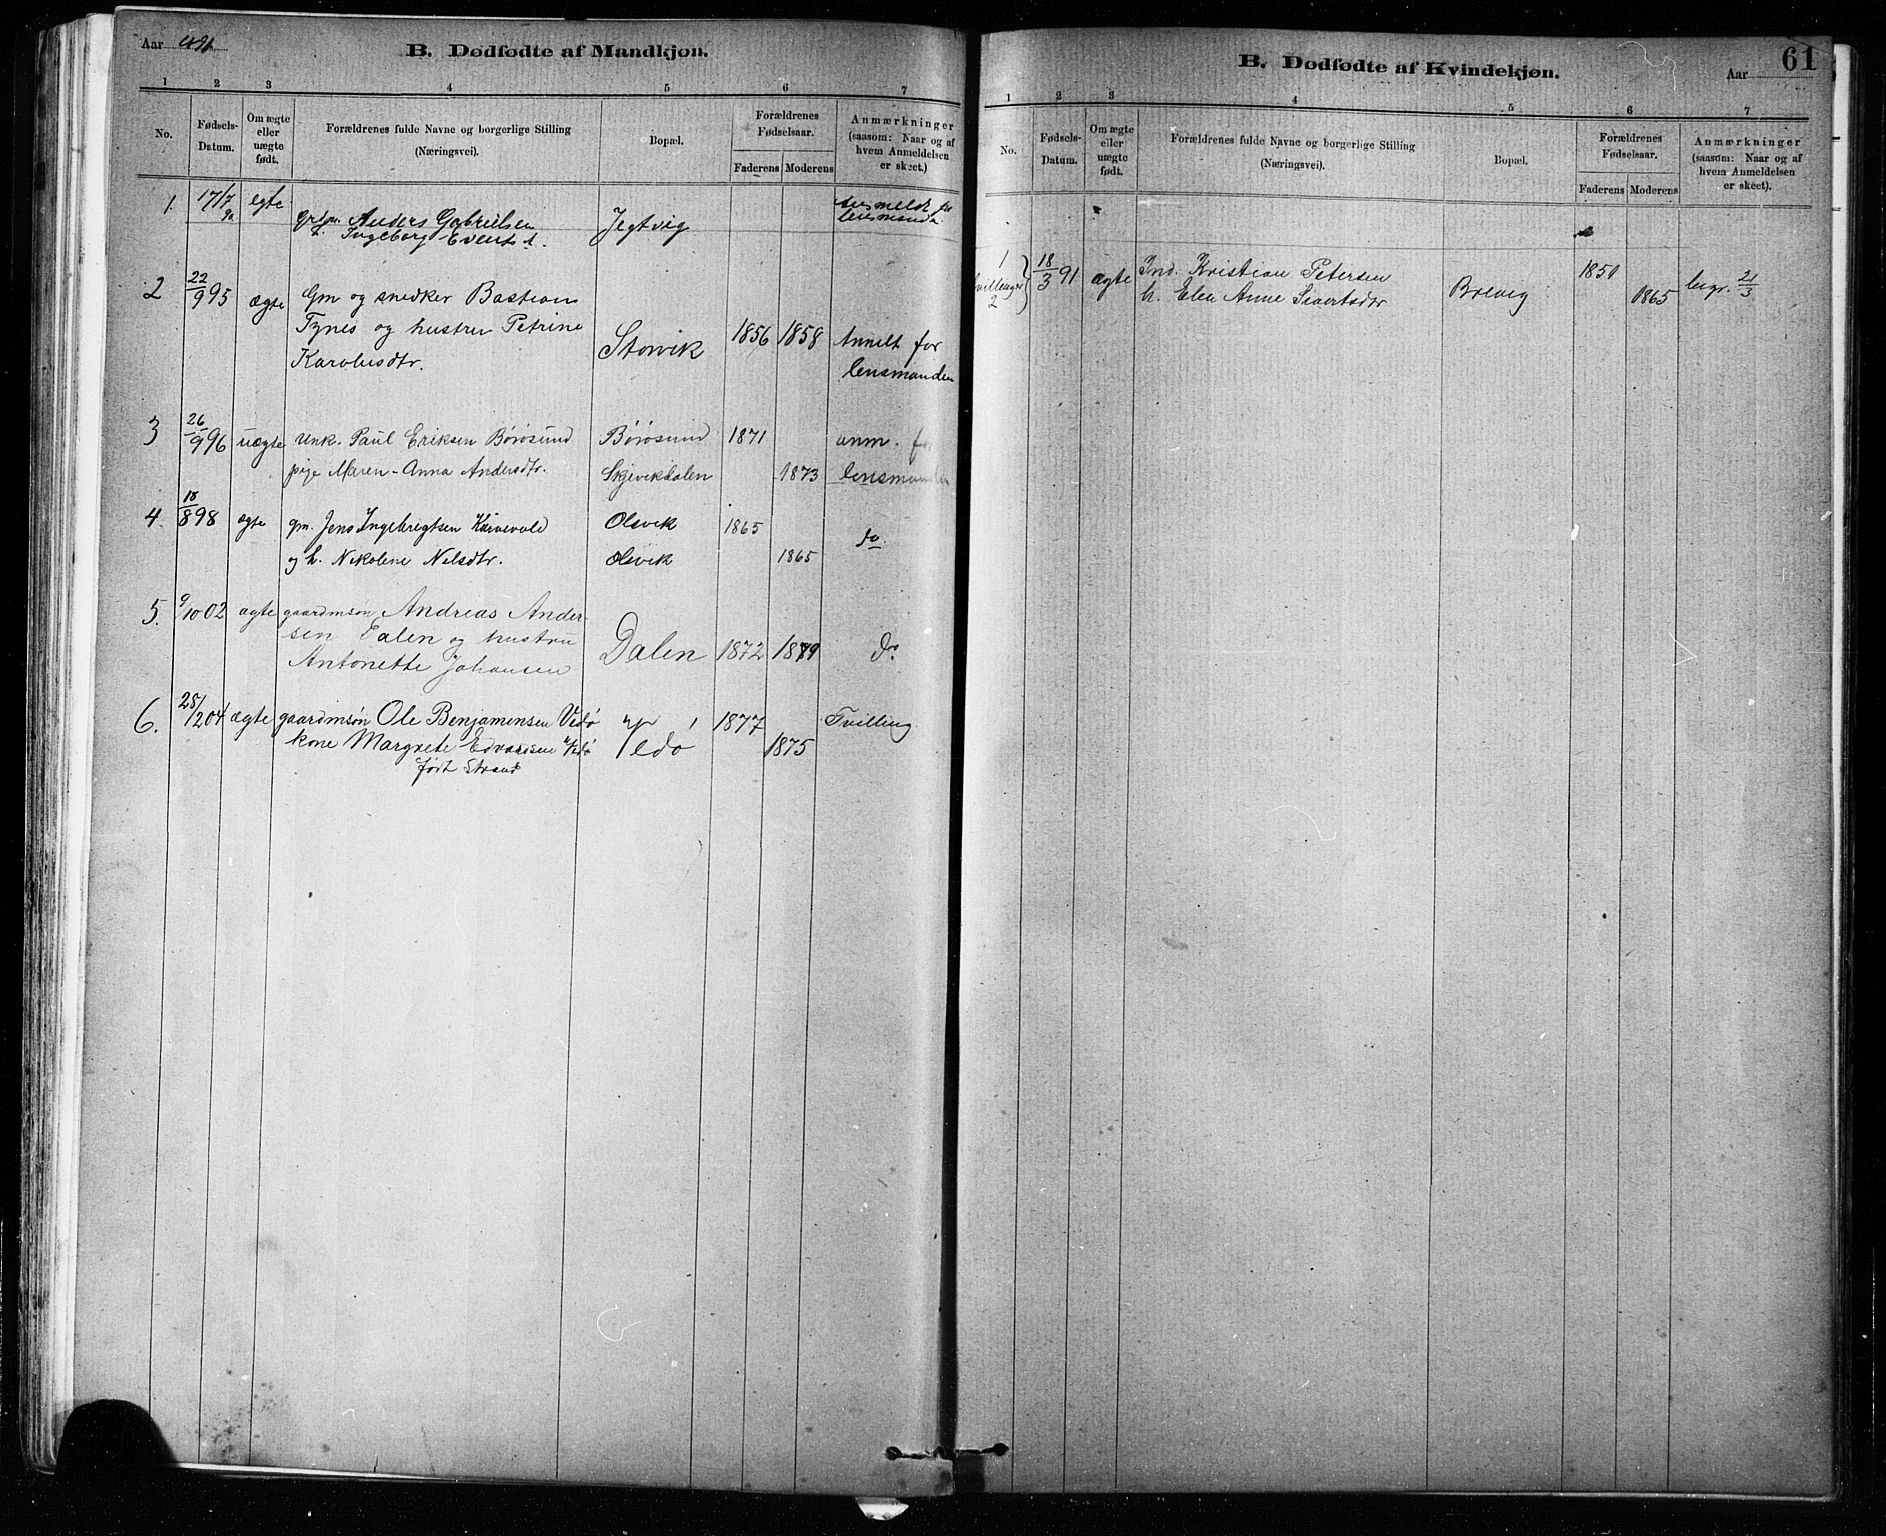 Aar
B. Dødfødte af Mandkjøn.
1 2 3 4 5 6 7
No.
Fødsels-
Datum.
Om ægte
eller
uægte
født.
Forældrenes fulde Navne og borgerlige Stilling
(Næringsvei).
Bopæl.
Forældrenes
Fødselsaar.
Faderens Moderens
Anmærkninger
(saasom: Naar og af
hvem Anmeldelsen
er skeet.)
1 17/7 egte
Anders Gabrielsen Jegtvig
Ingeborg
2 22/9 95 ægte Gm og snedker Bastian
Tynes og hustru Petrine Storvik 1856 1858 Anmelt for
Karolusdtr. lensmanden
3 26/9 96 uægte unk. Paul Eriksen Børøsund Børøsund 1871 anm. for
pige Maren-Anna Andersdtr. Skjevikdalen 1873 lensmanden
4 18/8 98 ægte gm. Jens Ingebregtsen Olsvik 1865 do
og h. Nikolene Nilsdtr. Olsvik 1865
5. 9/10 02 ægte gaardmsøn Andreas Ander-
sen Dalen og hustru Dalen 1872 1879 Do
Antonette Johansen
6. 28/12 04 ægte gaardmsøn Ole Benjamensen Vedø Vedø 1877 Tvilling
kone Margrete Edvardsen Vedø 1875
født Strand
B. Dødfødte af Kvindekjøn.
Aar
61
1 2 3 4 5 6 7
No.
Fødsels-
Datum.
Om ægte
eller
uægte
født.
Forældrenes fulde Navne og borgerlige Stilling
(Næringsvei).
Bopæl.
Forældrenes
Fødselsaar.
Faderens Moderens
Anmærkninger
(saasom: Naar og af
hvem Anmeldelsen
er skeet).
1 18/3 91 ægte Ind. Kristian Petersen Brevig 1850
tvillinger
2 h. Elen Anne Sivertsdtr 1865 begr. 21/3